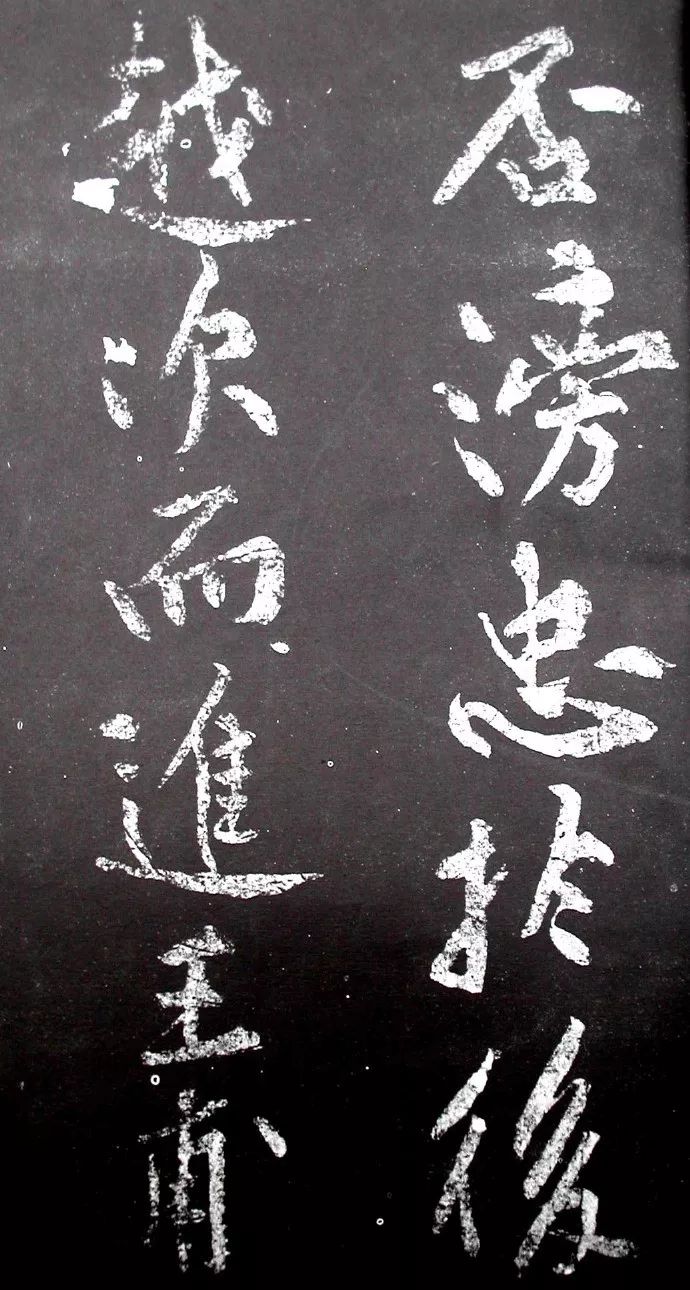 否滂忠於後
越次而進王甫